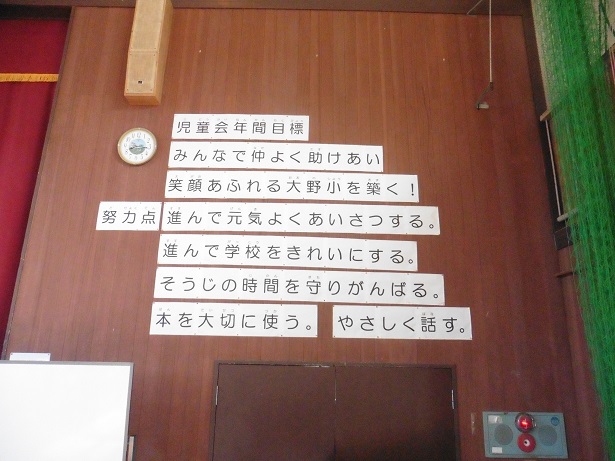 児童会年間目標
みんなで仲よく助けあい
笑顔あふれる大野小を築く！
努力点 進んで元気よくあいさつする。
進んで学校をきれいにする。
そうじの時間を守りがんばる。
本を大切に使う。 やさしく話す。